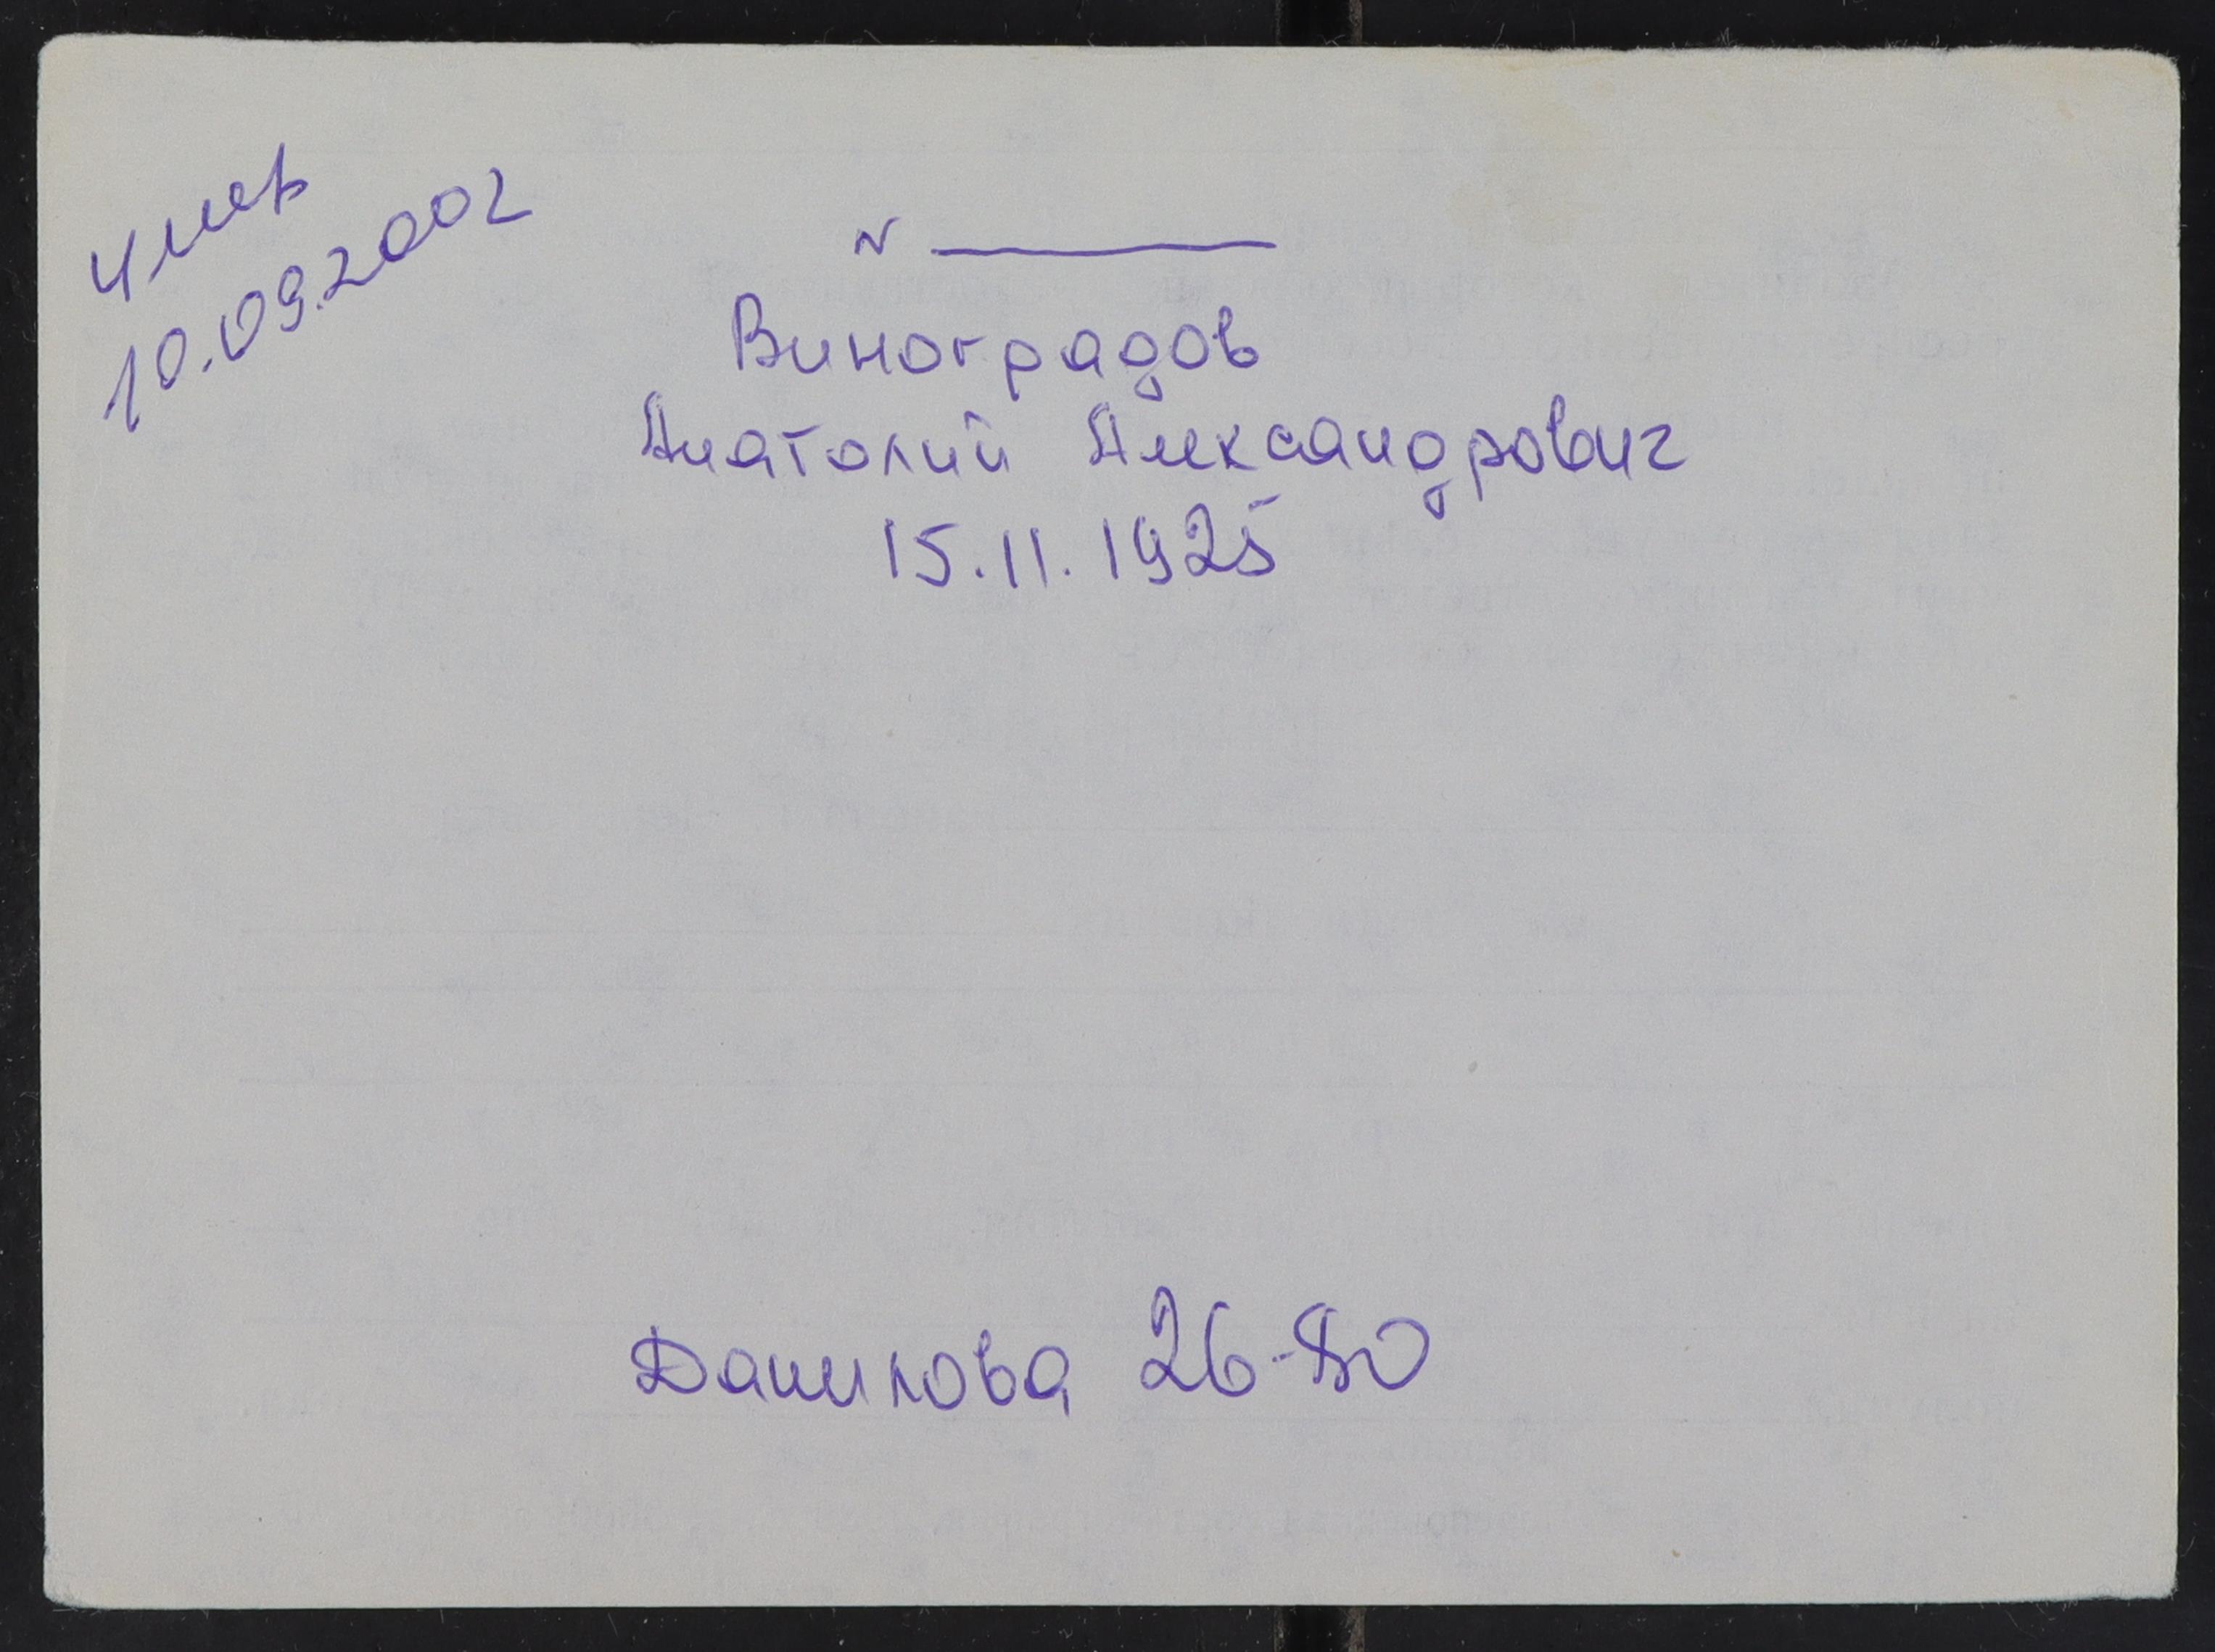 умер
10.09.2002
N
Виноградов
Анатолий Александрович
15.11.1925
Данилова 26-80